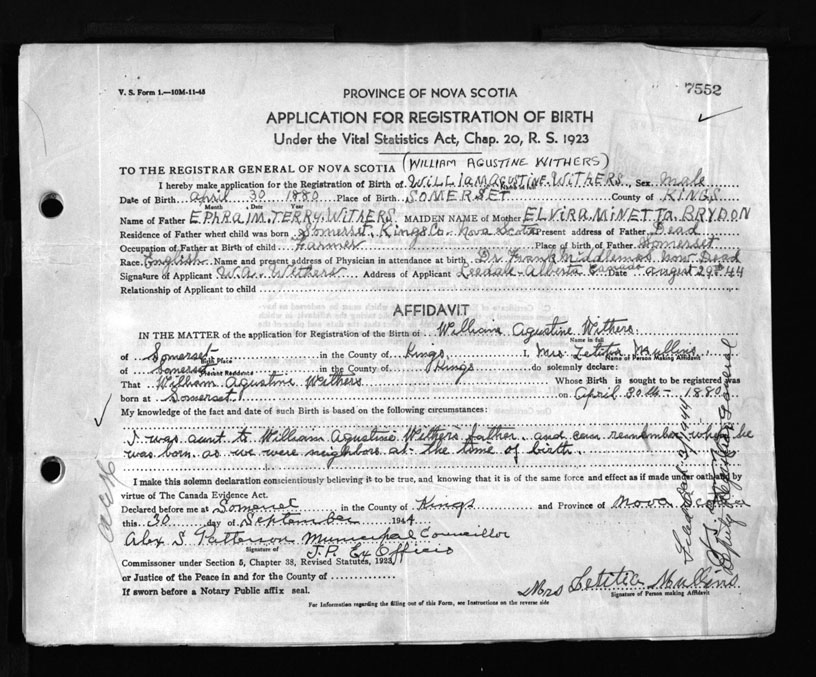 V. S. Form 1.—10M-11-43
PROVINCE OF NOVA SCOTIA
7552
APPLICATION FOR REGISTRATION OF BIRTH
Under the Vital Statistics Act, Chap. 20, R. S. 1923
(WILLIAM AGUSTINE WITHERS)
TO THE REGISTRAR GENERAL OF NOVA SCOTIA
I hereby make application for the Registration of Birth of WILLIAM AGUSTINE WITHERS, Sex Male
Date of Birth April 30 1880 Place of Birth SOMERSET County of KINGS
Month Date Year
Name of Father EPHRAIM TERRY WITHERS MAIDEN NAME of Mother ELVIRA MINETTA BRYDON
Residence of Father when child was born Somerset, Kings Co. Nova Scotia Present address of Father Dead
Occupation of Father at Birth of child Farmer Place of birth of Father Somerset
Race English Name and present address of Physician in attendance at birth Dr. Frank Middlemas now Dead
Signature of Applicant W.A. Withers Address of Applicant Leedale Alberta Canada Date August 29th 44
Relationship of Applicant to child
AFFIDAVIT
IN THE MATTER of the application for Registration of the Birth of William Agustine Withers
Name in full
of Somerset in the County of Kings, I, Mrs Letitia Mullins
Birth Place Name of Person Making Affidavit
of Somerset in the County of Kings do solemnly declare:
Present Residence
That William Agustine Withers Whose Birth is sought to be registered was
born at Somerset on April 30th - 1880
My knowledge of the fact and date of such Birth is based on the following circumstances:
I was aunt to William Agustine Withers father. and can remember when he
was born as we were neighbors at the time of birth.
I make this solemn declaration conscientiously believing it to be true, and knowing that it is of the same force and effect as if made under oath by
virtue of The Canada Evidence Act.
Declared before me at Somerset in the County of Kings and Province of Nova Scotia
this 30 day of September 1944
Alex S Patterson Municipal Councillor
Signature of J.P. Ex Officio
Commissioner under Section 5, Chapter 38, Revised Statutes, 1923
or Justice of the Peace in and for the County of
If sworn before a Notary Public affix seal.
Mrs Letitia Mullins
Signature of Person making Affidavit
For Information regarding the filling out of this Form, see Instructions on the reverse side
Deputy Registrar General